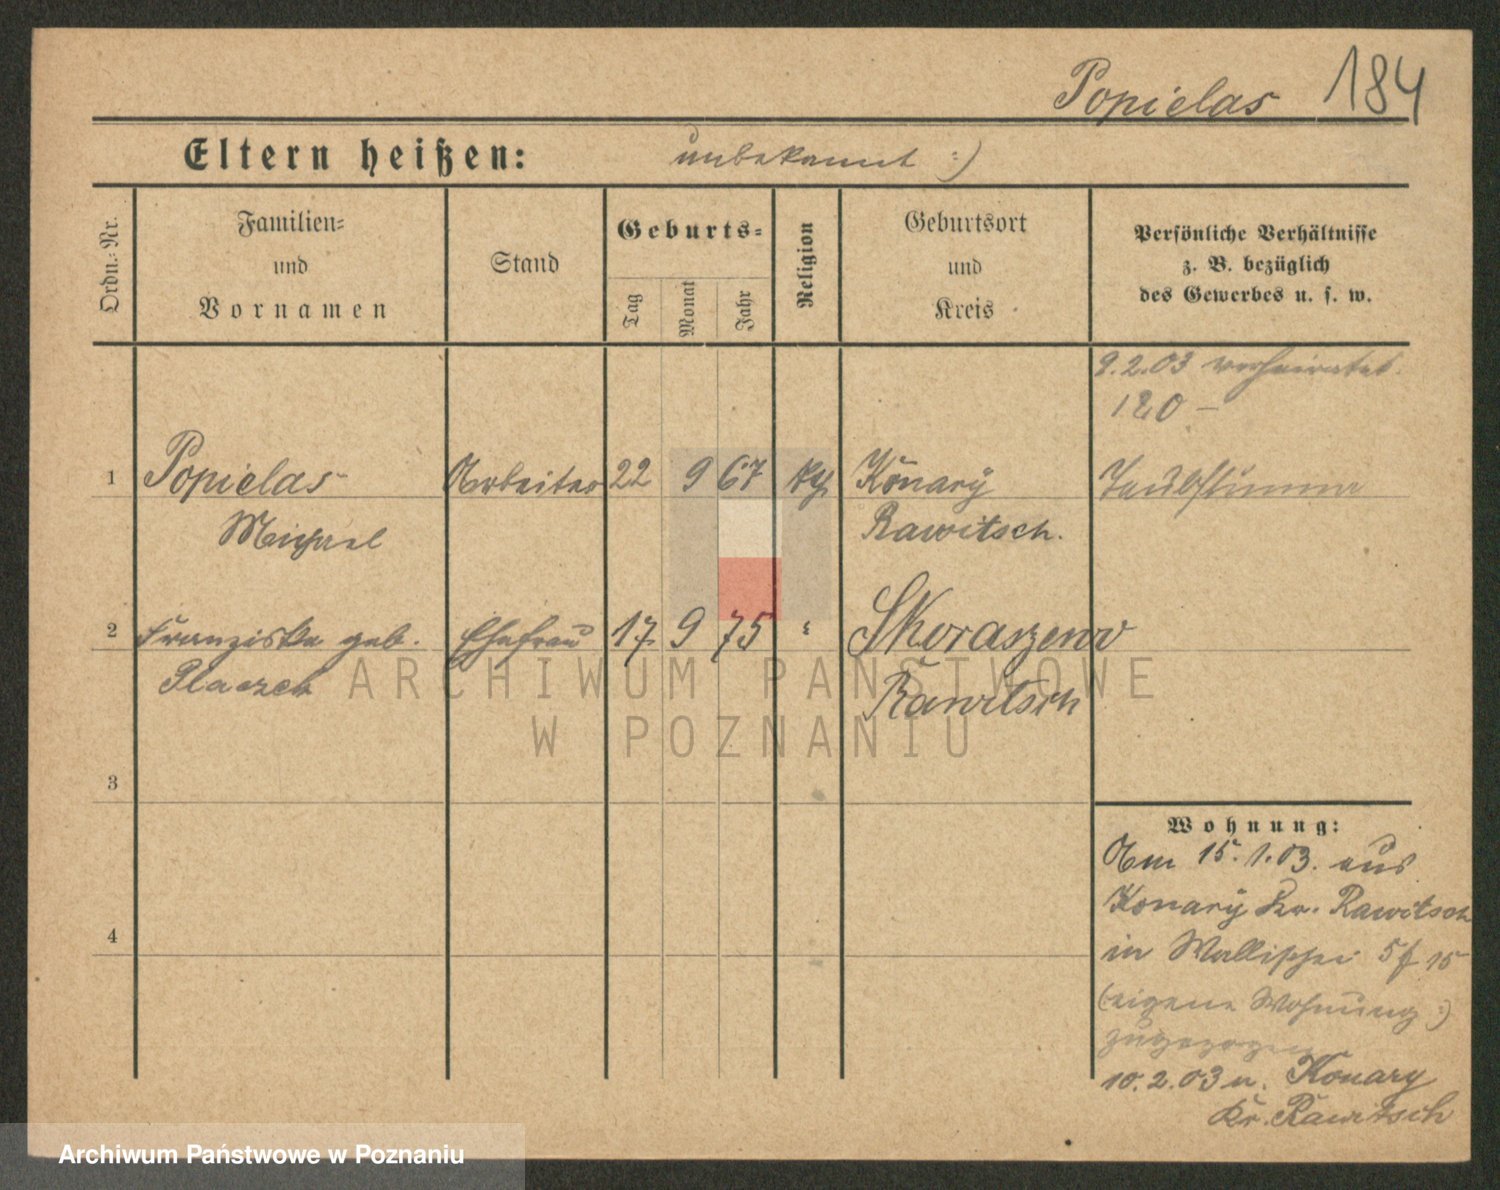 Popielas 184
Eltern heißen: unbekannt :)
Ordn.-Nr.
Familien-
und
Vornamen
Stand
Geburts-
Tag
Monat
Jahr
Religion
Geburtsort
und
Kreis
Persönliche Verhältnisse
z. B. bezüglich
des Gewerbes u. s. w.
9.2.03 verheiratet.
120 –
1 Popielas Arbeiter 22 9 67 kth Konary Taubstumm
Michael Rawitsch.
2 Franziska geb. Ehefrau 17 9 75 " Skoraszewo
Placzek Rawitsch
ARCHIWUM PAŃSTWOWE
W POZNANIU
3
4
Wohnung:
Am 15.1.03. aus
Konary Kr. Rawitsch
in Wallischei 5 f 15
(eigene Wohnung :)
zugezogen
10.2.03 n. Konary
Kr. Rawitsch
Archiwum Państwowe w Poznaniu